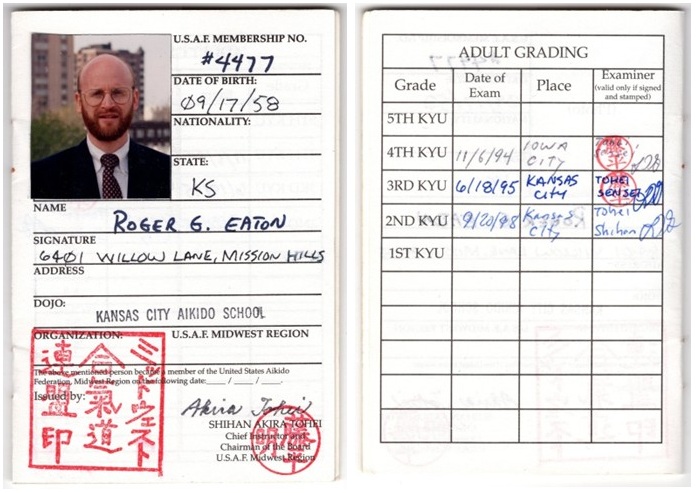 U.S.A.F. MEMBERSHIP NO.
#4477
DATE OF BIRTH:
09/17/58
NATIONALITY:
STATE:
KS
NAME
ROGER G. EATON
SIGNATURE
6401 WILLOW LANE, MISSION HILLS
ADDRESS
DOJO:
KANSAS CITY AIKIDO SCHOOL
ORGANIZATION: U.S.A.F. MIDWEST REGION
The above mentioned person became a member of the United States Aikido
Federation, Midwest Region on the following date:____ / ____ / ____.
Issued by:
Akira Tohei
SHIHAN AKIRA TOHEI
Chief Instructor and
Chairman of the Board
U.S.A.F. Midwest Region
ミッドウェスト
合氣道
連盟印
ADULT GRADING
Grade Date of Exam Place Examiner
(valid only if signed and stamped)
5TH KYU
4TH KYU 11/6/94 IOWA CITY
3RD KYU 6/18/95 KANSAS CITY TOHEI SENSEI
2ND KYU 9/20/98 Kansas City Tohei Shihan
1ST KYU